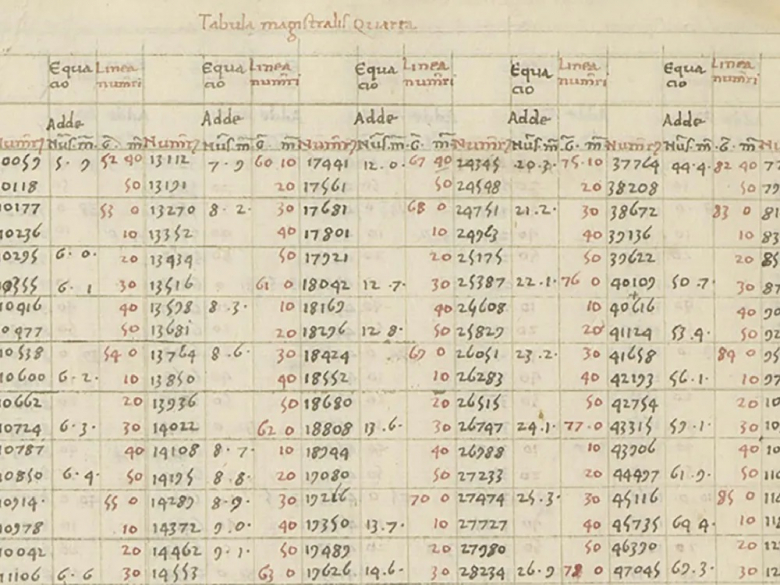 Tabula magistralis Quarta
Equa Linea Equa Linea Equa Linea Equa Linea Equa Linea
cio numri cio numri cio numri cio numri cio numri
Adde Adde Adde Adde Adde
Nus. m. G. m Numri Nus. m. G. m Numri Nus. m. G. m Numri Nus. m. G. m Numri Nus. m. G. m
0059 5·9 52 40 13112 7·9 60 10 17441 12·0· 67 40 24345 20·3· 75·10 37764 44·4· 82 40 77
0118 50 13191 20 17561 50 24548 20 38208 50 79
0177 53 0 13270 8·2· 30 17681 68 0 24751 21·2· 30 38672 83 0 81
0236 10 13352 40 17801 10 24963 40 39136 10 83
0295 6·0· 20 13434 50 17921 20 25175 50 39622 20 85
0355 6·1 30 13516 61 0 18042 12·7· 30 25387 22·1· 76 0 40109 50·7· 30 87
0416 40 13598 8·3· 10 18169 40 25608 10 40616 40 90
0477 50 13681 20 18296 12 8· 50 25829 20 41124 53·4· 50 92
0538 54 0 13764 8·6· 30 18424 69 0 26051 23·2· 30 41658 84 0 95
10600 6·2· 10 13850 40 18552 10 26283 40 42193 56·1· 10 97
10662 20 13936 50 18680 20 26515 50 42754 20 10
10724 6·3· 30 14022 62 0 18808 13·6· 30 26747 24·1· 77·0 43315 59·1· 30 10
10787 40 14108 8·7· 10 18944 40 26988 10 43906 40 10
10850 6·4· 50 14195 8·8· 20 19080 50 27233 20 44497 61·9· 50 11
10914· 55 0 14284 8·9· 30 19216 70 0 27474 25·3· 30 45116 85 0 11
10978 10 14372 9·0· 40 19350 13·7· 10 27727 40 45735 64 4· 10 11
10042 20 14462 9·1· 50 19489 20 27980 50 46390 20 12
11106 6·6 30 14553 63 0 19626 14·6· 30 28234 26·9 78 0 47045 69·3· 30 12